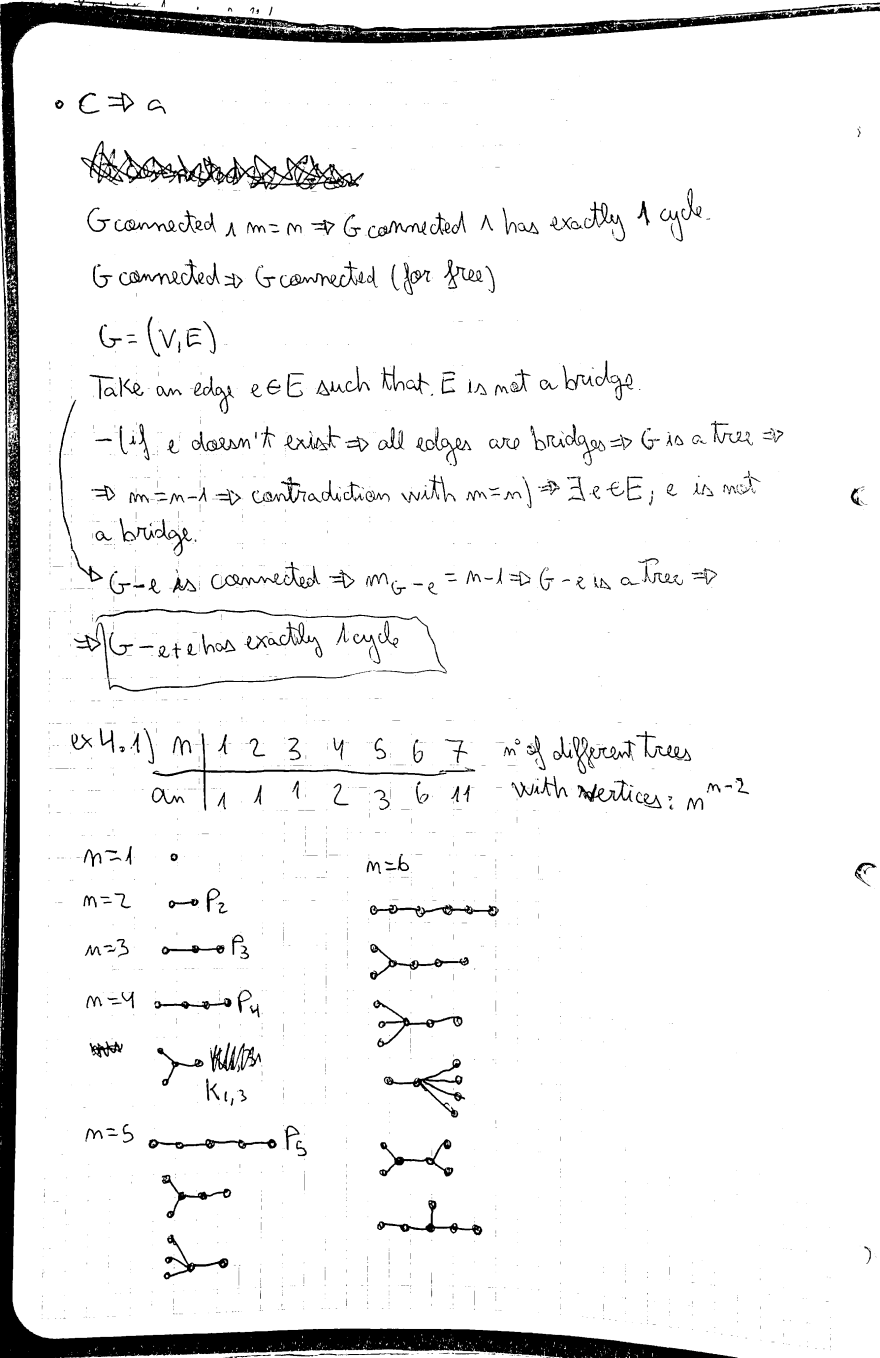 • C ⇒ a
G connected ∧ m=n ⇒ G connected ∧ has exactly 1 cycle.
G connected ⇒ G connected (for free)
G=(V,E)
Take an edge e∈E such that. E is not a bridge.
-(if e doesn't exist ⇒ all edges are bridges ⇒ G is a tree ⇒
⇒ m=n-1 ⇒ contradiction with m=n) ⇒ ∃e∈E; e is not
a bridge.
G-e is connected ⇒ m_{G-e} = n-1 ⇒ G-e is a tree ⇒
⇒ G-e+e has exactly 1 cycle
ex 4.1) n | 1 2 3 4 5 6 7 nº of different trees
an | 1 1 1 2 3 6 11 with vertices: n^{n-2}
n=1
n=2 P_2
n=3 P_3
n=4 P_4
K_{1,3}
n=5 P_5
n=6